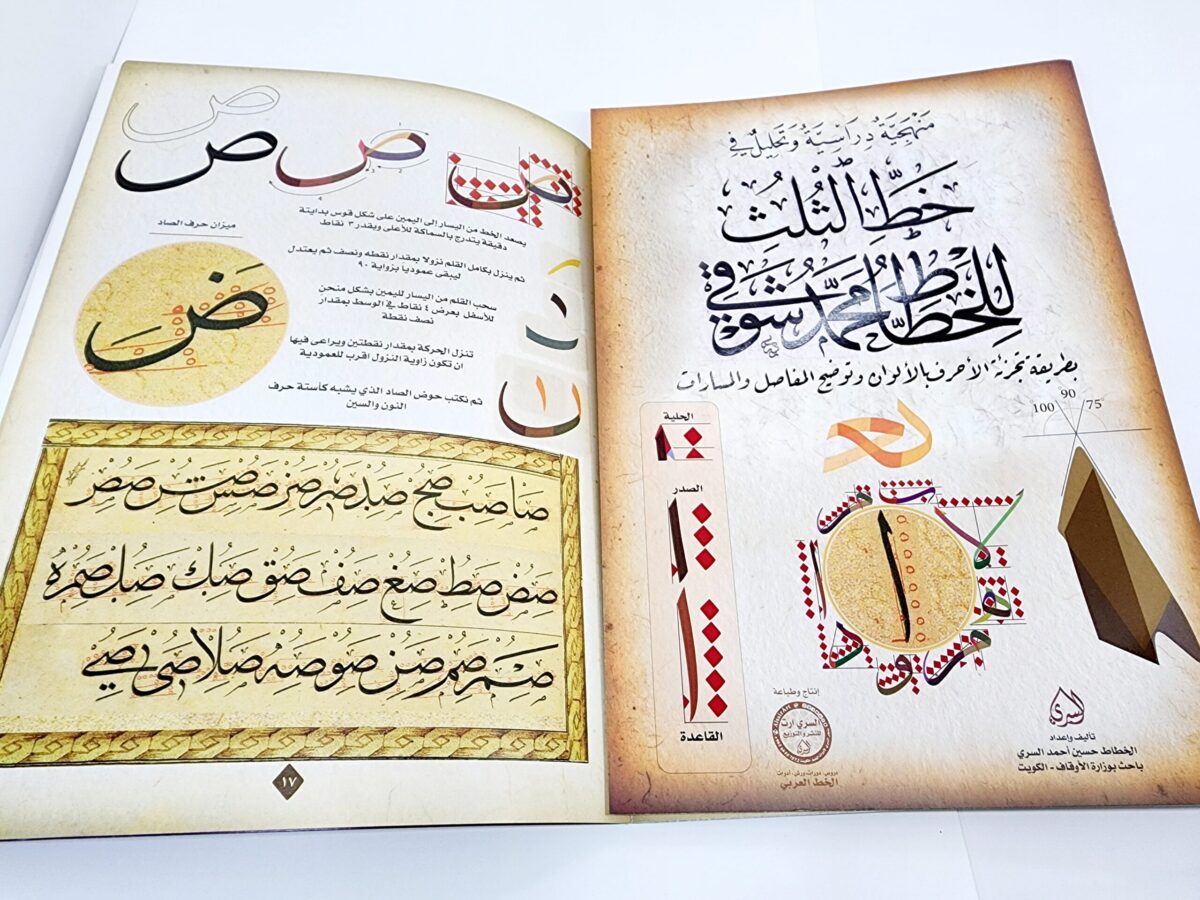 منهجية دراسية وتحليل في
خط الثلث
للخطاط محمد شوقي
بطريقة تجزئة الأحرف بالألوان وتوضيح المفاصل والمسارات
100 90 75
الحلية
الصدر
القاعدة
إنتاج وطباعة
السري ارت
للنشر والتوزيع
دروس، دورات، ورش، أدوات
الخط العربي
السري
تأليف وإعداد
الخطاط حسين أحمد السري
باحث بوزارة الأوقاف - الكويت
ص ص ص ص
يصعد الخط من اليسار إلى اليمين على شكل قوس بدايتة
دقيقة يتدرج بالسماكة للأعلى ويقدر ٣ نقاط
ثم ينزل بكامل القلم نزولا بمقدار نقطه ونصف ثم يعتدل
ليبقى عموديا بزواية ٩٠
سحب القلم من اليسار لليمين بشكل منحن
للأسفل بعرض ٤ نقاط في الوسط بمقدار
نصف نقطة
تنزل الحركة بمقدار نقطتين ويراعى فيها
ان تكون زاوية النزول اقرب للعمودية
ثم نكتب حوض الصاد الذي يشبه كأستة حرف
النون والسين
ميزان حرف الصاد
ض
صا صب صج صد صر صز صس صش صص
صض صط صغ صف صق صك صل صمره
صم صم صن صو صه صلا صى صي
١٧